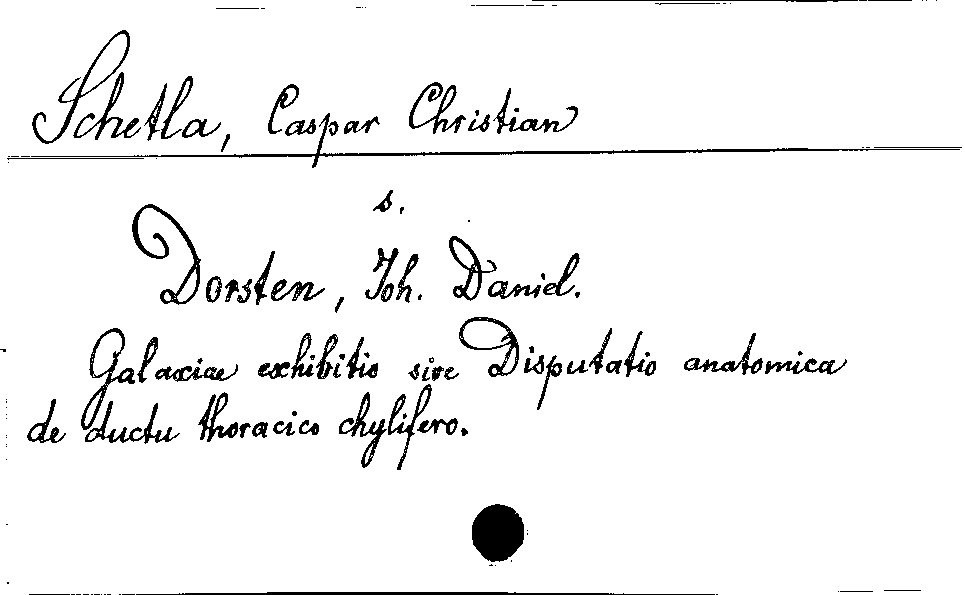 Schetla, Caspar Christian
s.
Dorsten, Joh. Daniel.
Galaxiae exhibitio sive Disputatio anatomica
de ductu thoracico chylifero.